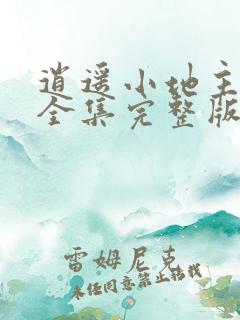 逍遥小地主
全集完整版
雷姆尼克
未经同意禁止转载